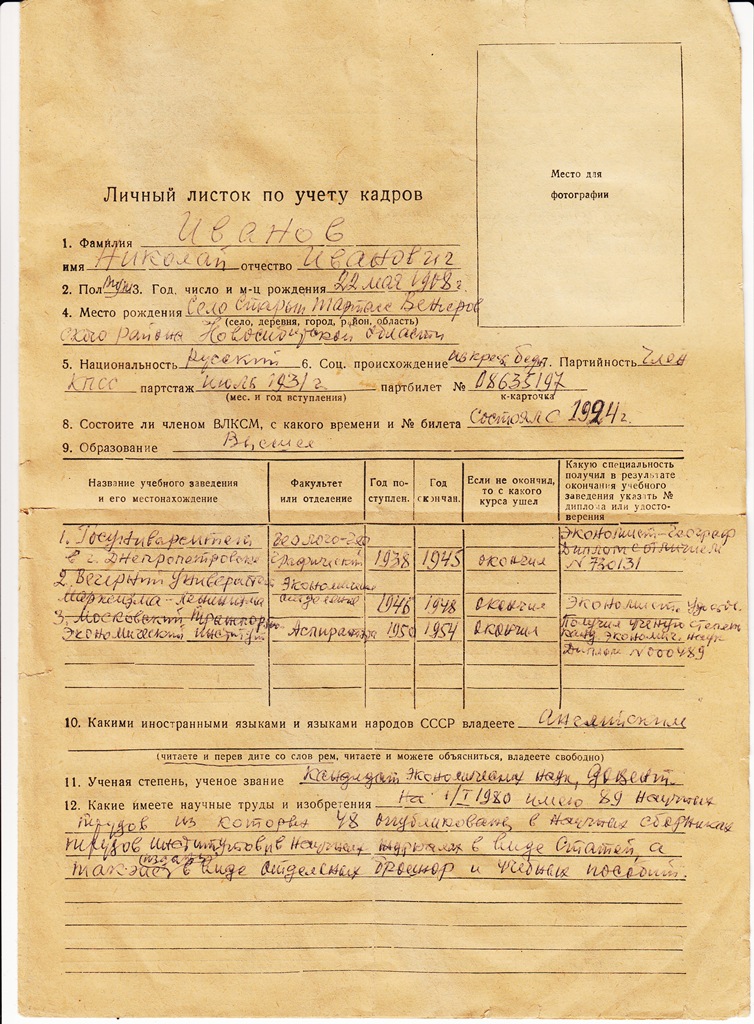 Место для
фотографии
Личный листок по учету кадров
1. Фамилия Иванов
имя Николай отчество Иванович
2. Пол муж 3. Год, число и м-ц рождения 22 мая 1908 г.
4. Место рождения Село Старый Тартасс Венгеров
(село, деревня, город, район, область)
ского района Новосибирской области
5. Национальность Русский 6. Соц. происхождение из крест. бедн. 7. Партийность Член
КПСС партстаж июль 1931 г партбилет № 08635197
(мес. и год вступления) к-карточка
8. Состоите ли членом ВЛКСМ, с какого времени и № билета Состоял с 1924 г.
9. Образование Высшее
Название учебного заведения и его местонахождение
Факультет или отделение
Год поступлен.
Год окончан.
Если не окончил, то с какого курса ушел
Какую специальность получил в результате окончания учебного заведения указать № диплома или удостоверения
1. Госуниверситет в г. Днепропетровске Геолого-географический 1938 1945 окончил Экономист-географ Диплом с отличием N 730131
2. Вечерний Университет Марксизма-Ленинизма Экономическ отделение 1946 1948 окончил Экономист.
3. Московский Транспортно Экономический Институт Аспирантура 1950 1954 окончил Получил ученую степень канд. экономич. наук Диплом N 000489
10. Какими иностранными языками и языками народов СССР владеете Английским
(читаете и перев дите со слов рем, читаете и можете объясниться, владеете свободно)
11. Ученая степень, ученое звание Кандидат экономических наук, доцент
12. Какие имеете научные труды и изобретения На 1/I 1980 имею 89 научных
трудов из которых 48 опубликованы в научных сборниках
трудов институтов, в научных журналах в виде статей, а
также (изданы) в виде отдельных брошюр и учебных пособий.